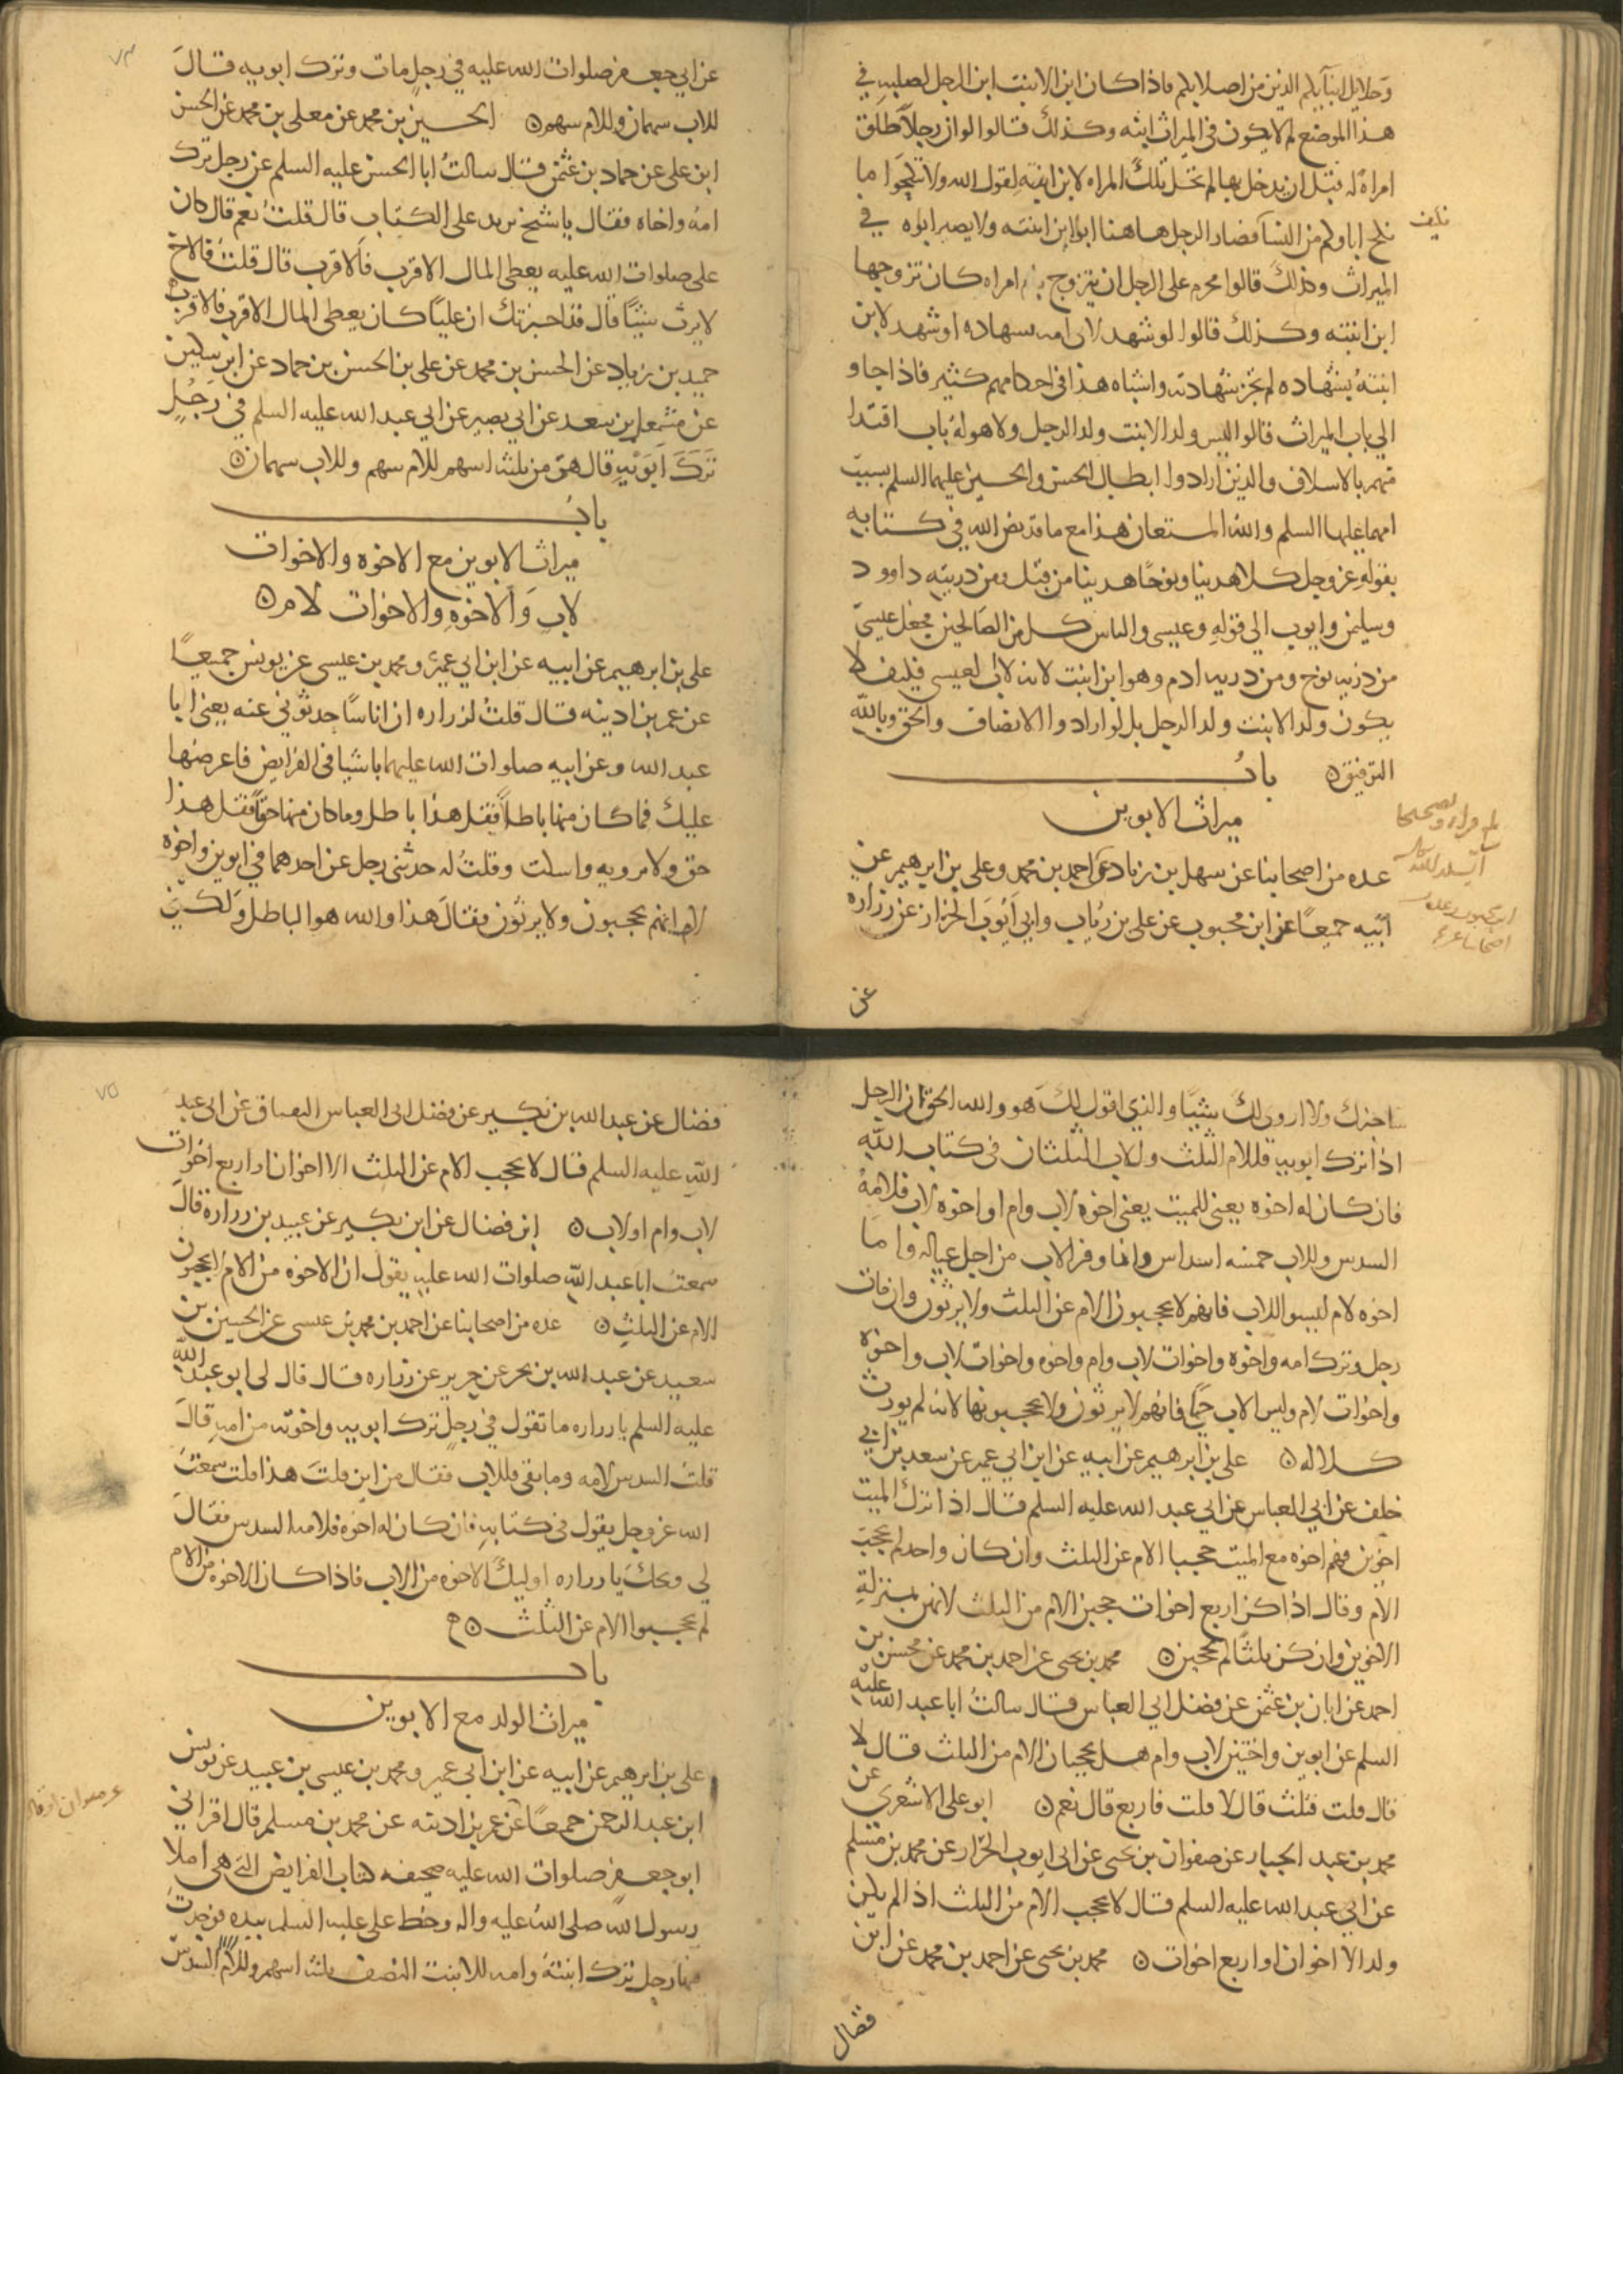 وحلايل ابنآيكم الذين من اصلابكم فاذا كان ابن الابنت ابن الرجل لصلبه في
هذا الموضع لم لا يكون في الميراث ابنه وكذلك قالوا لو ان رجلاً طلق
امراة له قبل ان يدخل بها لم تحل تلك المراه لابن ابنته لقول الله ولا تنكحوا ما
نكح اباوكم من النسآ فصار الرجل هاهنا ابوا ابن ابنته ولا يصير اباه في
فكيف
الميراث وكذلك قالوا محرم على الرجل ان يتزوج امراه كان تزوجها
ابن ابنته وكذلك قالوا لو شهد لابي امه بشهاده او شهد لابن
ابنته بشهاده لم تجز شهادته واشباه هذا في احكامهم كثير فاذا جاوا
الى باب الميراث قالوا ليس ولد الابنت ولد الرجل ولا هو له باب اقتدا
منهم بالاسلاف والذين ارادوا ابطال الحسن والحسين عليهما السلم بسبب
امهما عليها السلم والله المستعان هذا مع ما قد نص الله في كتابه
بقوله عز وجل كلا هدينا ونوحًا هدينا من قبل ومن ذريته داوود
وسليمن وايوب الى قوله وعيسى والياس كل من الصالحين فجعل عيسى
من ذريه نوح ومن ذريه ادم وهو ابن ابنت لانه لا اب لعيسى فكيف لا
يكون ولد الابنت ولد الرجل بل لو ارادوا الانصاف والحق وبالله
التوفيق ٥ باب
ميراث الابوين
عده من اصحابنا عن سهل بن زياد عن احمد بن محمد وعلي بن ابرهيم عن
ابيه جميعًا عن ابن محبوب عن علي بن رياب وابي ايوب الخزاز عن زراره
عن
٧٣
عن ابي جعفر صلوات الله عليه في رجل مات وترك ابويه قال
للاب سهمان وللام سهم ٥ الحسين بن محمد عن معلى بن محمد عن الحسن
ابن علي عن حماد بن عثمن قال سالت ابا الحسن عليه السلم عن رجل ترك
امه واخاه فقال يا شيخ تريد على الكتاب قال قلت نعم قال كان
علي صلوات الله عليه يعطي المال الاقرب فالاقرب قال قلت فالاخ
لا يرث شيئًا قال قد اخبرتك ان عليًا كان يعطي المال الاقرب فالاقرب
حميد بن زياد عن الحسن بن محمد عن علي بن الحسن بن حماد عن ابن سكين
عن مشمعل بن سعد عن ابي بصير عن ابي عبد الله عليه السلم في رجل
ترك ابويه قال هي من ثلثه اسهم للام سهم وللاب سهمان ٥
باب
ميراث الابوين مع الاخوه والاخوات
لاب والاخوه والاخوات لام ٥
علي بن ابرهيم عن ابيه عن ابن ابي عمير ومحمد بن عيسى عن يونس جميعًا
عن عمر بن اذينه قال قلت لزراره ان اناسًا حدثوني عنه يعني ابا
عبد الله وعن ابيه صلوات الله عليهما باشيا في الفرايض فاعرضها
عليك فما كان منها باطلاً فقل هذا باطل وما كان منها حقًا فقل هذا
حق ولا ترويه واسكت وقلت له حدثني رجل عن احدهما في ابوين واخوه
لام انهم يحجبون ولا يرثون فقال هذا والله هو الباطل ولكني
ساخبرك ولا اروي لك شيئًا والذي اقول لك هو والله الحق ان الرجل
اذا ترك ابويه فللام الثلث وللاب الثلثان في كتاب الله
فان كان له اخوه يعني للميت يعني اخوه لاب وام او اخوه لاب فلامه
السدس وللاب خمسه اسداس وانما وفر للاب من اجل عياله واما
اخوه لام ليسوا للاب فانهم لا يحجبون الام عن الثلث ولا يرثون وان مات
رجل وترك امه واخوه واخوات لاب وام واخوه واخوات لاب واخوه
واخوات لام وليس الاب حيًا فانهم لا يرثون ولا يحجبونها لانه لم يورث
كلاله ٥ علي بن ابرهيم عن ابيه عن ابن ابي عمير عن سعد بن ابي
خلف عن ابي العباس عن ابي عبد الله عليه السلم قال اذا ترك الميت
اخوين فهم اخوه مع الميت حجبا الام عن الثلث وان كان واحد لم يحجب
الام وقال اذا كن اربع اخوات حجبن الام من الثلث لانهن بمنزلة
الاخوين وان كن ثلثا لم يحجبن ٥ محمد بن يحيى عن احمد بن محمد عن محسن بن
احمد عن ابان بن عثمن عن فضل ابي العباس قال سالت ابا عبد الله عليه
السلم عن ابوين واختين لاب وام هل يحجبان الام من الثلث قال لا
قال قلت فثلث قال لا قلت فاربع قال نعم ٥ ابو علي الاشعري عن
محمد بن عبد الجبار عن صفوان بن يحيى عن ابي ايوب الخزاز عن محمد بن مسلم
عن ابي عبد الله عليه السلم قال لا يحجب الام من الثلث اذا لم يكن
ولد الا اخوان او اربع اخوات ٥ محمد بن يحيى عن احمد بن محمد عن ابن
فضال
٧٥
فضال عن عبد الله بن بكير عن فضل ابي العباس البقباق عن ابي عبد
الله عليه السلم قال لا يحجب الام عن الثلث الا اخوان او اربع اخوات
لاب وام او لاب ٥ ابن فضال عن ابن بكير عن عبيد بن زراره قال
سمعت ابا عبد الله صلوات الله عليه يقول ان الاخوه من الام لا يحجبون
الام عن الثلث ٥ عده من اصحابنا عن احمد بن محمد بن عيسى عن الحسين بن
سعيد عن عبد الله بن بحر عن حريز عن زراره قال قال لي ابو عبد الله
عليه السلم يا زراره ما تقول في رجل ترك ابويه واخوته من امه قال
قلت السدس لامه وما بقي فللاب فقال من اين قلت هذا قلت سمعت
الله عز وجل يقول في كتابه فان كان له اخوه فلامه السدس فقال
لي ويحك يا زراره اوليك الاخوه من الاب فاذا كان الاخوه من الام
لم يحجبوا الام عن الثلث ٥
باب
ميراث الولد مع الابوين
علي بن ابرهيم عن ابيه عن ابن ابي عمير ومحمد بن عيسى بن عبيد عن يونس
ابن عبد الرحمن جمعًا عن عمر بن اذينه عن محمد بن مسلم قال اقراني
ابو جعفر صلوات الله عليه صحيفه كتاب الفرايض التي هي املا
رسول الله صلى الله عليه واله وخط علي عليه السلم بيده فوجدت
فيها رجل ترك ابنته وامه للابنت النصف ثلثه اسهم وللام السدس